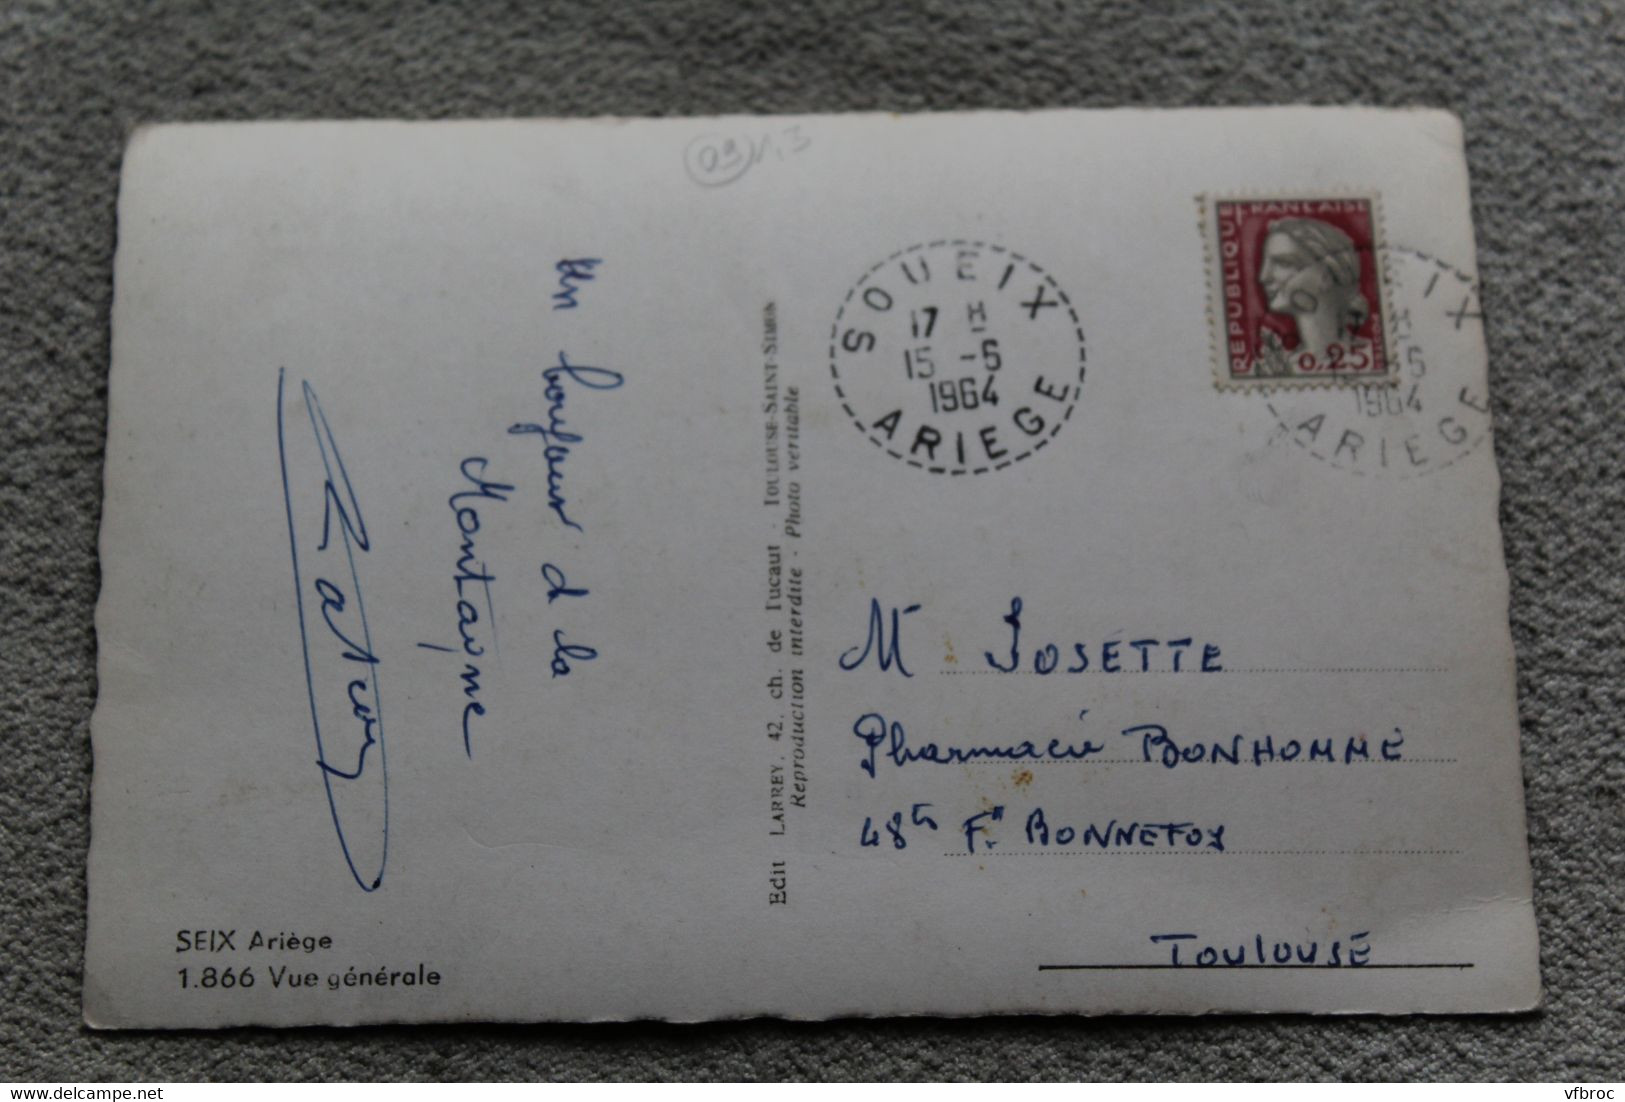 09
1,3
Un bonjour d la
Montagne
SEIX Ariège
1.866 Vue générale
Edit LARREY, 42, ch. de Tucaut - TOULOUSE-SAINT-SIMON
Reproduction interdite - Photo véritable
SOUEIX
17 H
15 -6
1964
ARIEGE
REPUBLIQUE FRANÇAISE
0,25
IX
H
6
1964
ARIEGE
Mlle JOSETTE
Pharmacie BONHOMME
48 Fg BONNEFOY
TOULOUSE
delcampe.net
vfbroc